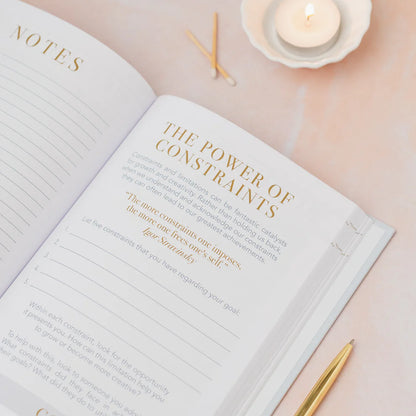 NOTES
THE POWER OF
CONSTRAINTS
Constraints and limitations can be fantastic catalysts
to growth and creativity. Rather than holding us back,
when we understand and acknowledge our constraints
they can often lead to our greatest achievements.
"The more constraints one imposes,
the more one frees one's self."
Igor Stravinsky
List five constraints that you have regarding your goal.
1.
2.
3.
4.
5.
Within each constraint, look for the opportunity
it presents you. How can this limitation help you
to grow or become more creative?
To help with this, look to someone you
What constraints did they face in
their goals? What did they do to